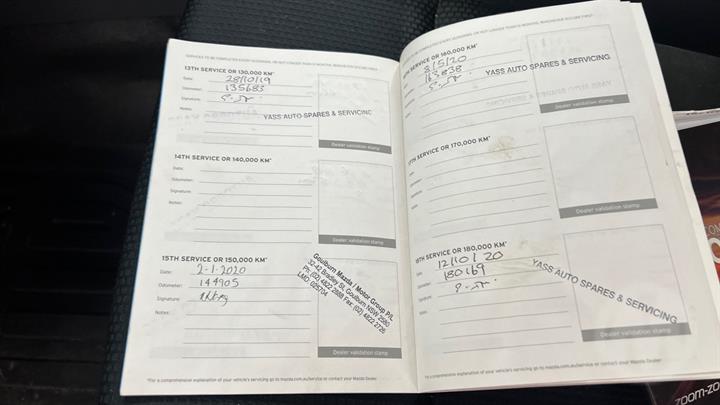 SERVICES TO BE COMPLETED EVERY 10,000KM, OR NOT LONGER THAN 6 MONTHS, WHICHEVER OCCURS FIRST
13TH SERVICE OR 130,000 KM*
Date: 28/10/19
Odometer: 135683
Signature:
Notes:
YASS AUTO SPARES & SERVICING
Dealer validation stamp
14TH SERVICE OR 140,000 KM*
Date:
Odometer:
Signature:
Notes:
Dealer validation stamp
15TH SERVICE OR 150,000 KM*
Date: 2-1-2020
Odometer: 144905
Signature:
Notes:
Goulburn Mazda / Motor Group P/L
32-42 Bradley St, Goulburn NSW 2580
Ph: (02) 4822 2888 Fax: (02) 4822 2726
LMD 025704
Dealer validation stamp
*For a comprehensive explanation of your vehicle's servicing go to mazda.com.au/service or contact your Mazda Dealer.
16TH SERVICE OR 160,000 KM*
8/5/20
163838
YASS AUTO SPARES & SERVICING
Dealer validation stamp
17TH SERVICE OR 170,000 KM*
Dealer validation stamp
18TH SERVICE OR 180,000 KM*
12/10/20
180169
YASS AUTO SPARES & SERVICING
Dealer validation stamp
*For a comprehensive explanation of your vehicle's servicing go to mazda.com.au/service or contact your Mazda Dealer.
zoom-zo